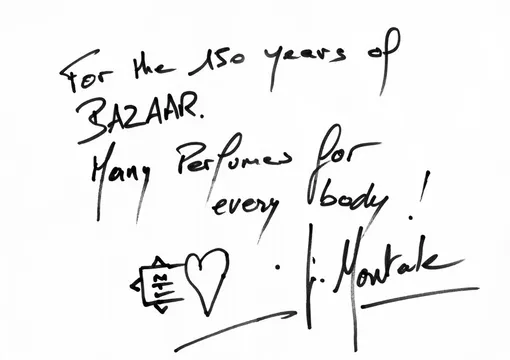 For the 150 years of
BAZAAR.
Many Perfumes for
every body !
. J. Montale